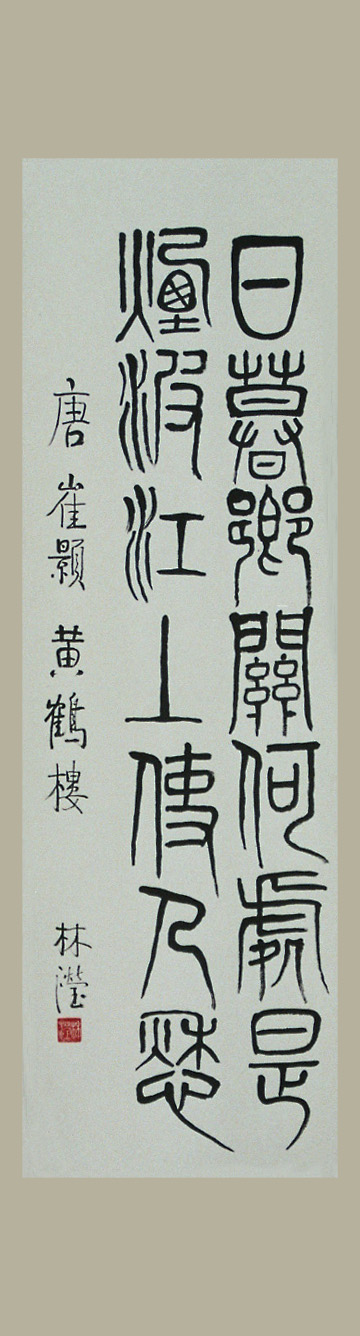 日暮鄉關何處是
煙波江上使人愁
唐 崔顥 黄鶴樓
林瀅